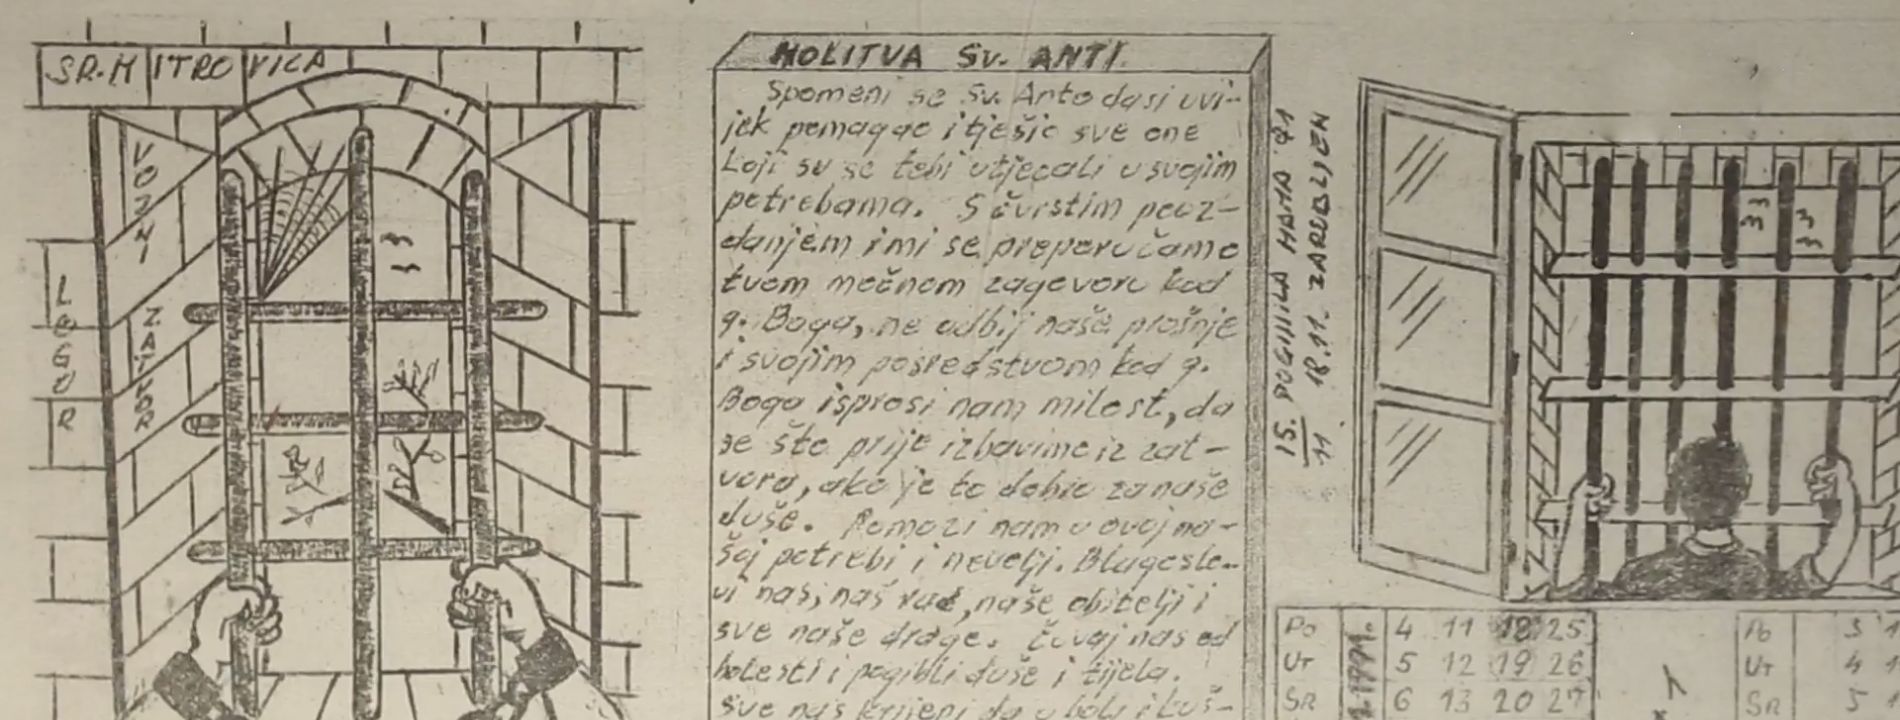 SR. MITROVICA
VOZNI
ZATVOR
LOGOR
MOLITVA SV. ANTI
Spomeni se Sv. Anto da si uvi-
jek pomagao i tješio sve one
koji su se tebi utjecali u svojim
potrebama. S čvrstim pouz-
danjem i mi se preporučamo
tvom moćnom zagovoru kod
g. Boga, ne odbij naše prošnje
i svojim posredstvom kod g.
Boga isprosi nam milost, da
se što prije izbavimo iz zat-
vora, ako je to dobro za naše
duše. Pomozi nam u ovoj na-
šoj potrebi i nevolji. Blagoslo-
vi nas, naš rad, naše obitelji i
sve naše drage. Čuvaj nas od
bolesti i pogibli duše i tijela.
Sve nas krijepi da u boli i kuš-
15. POGINILA MAMA 91
11 18.11. ZAROBLJEN
PO 4 11 18 25
UT 5 12 19 26
SR 6 13 20 27
1991.
PO 3
UT 4
SR 5